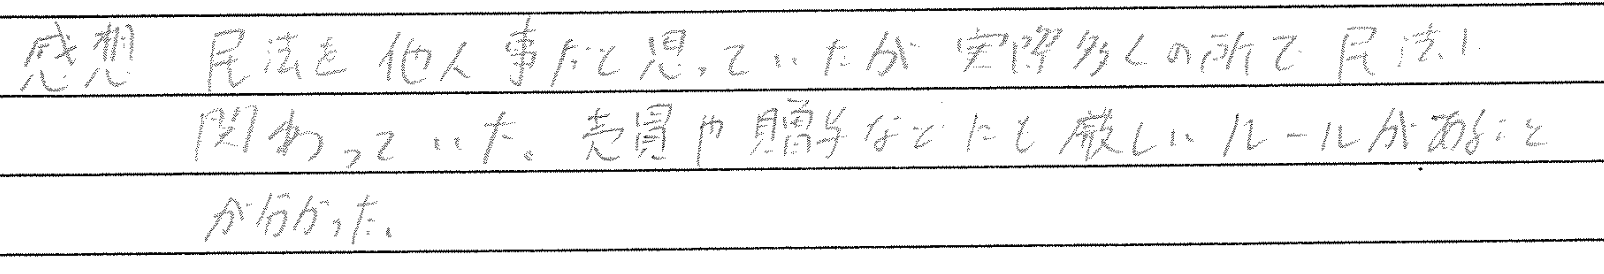 感想 民法を他人事だと思っていたが実際多くの所で民法に
関わっていた。売買や贈与などにも厳しいルールがあること
が分かった。